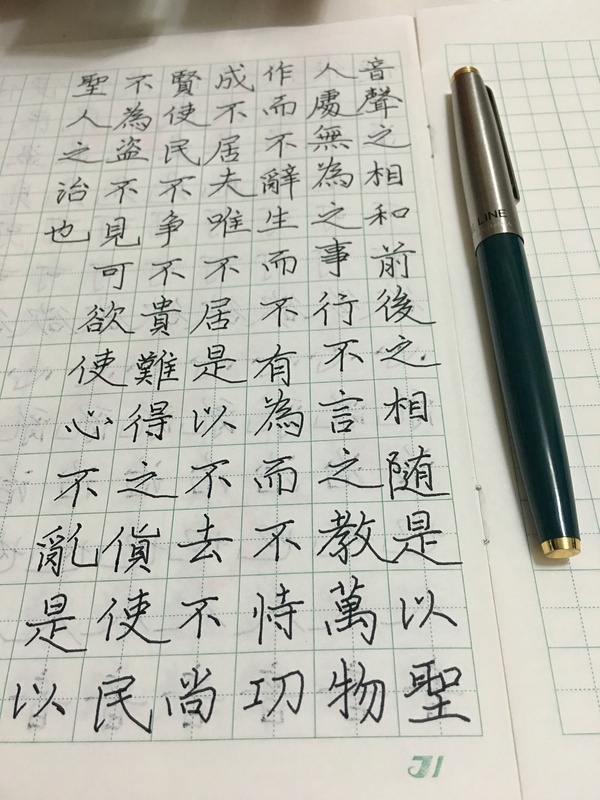 音聲之相和前後之相随是以聖
人處無為之事行不言之教萬物
作而不辭生而不有為而不恃功
成不居夫唯不居是以不去不尚
賢使民不争不貴難得之偵使民
不為盗不見可欲使心不亂是以
聖人之治也
LINE